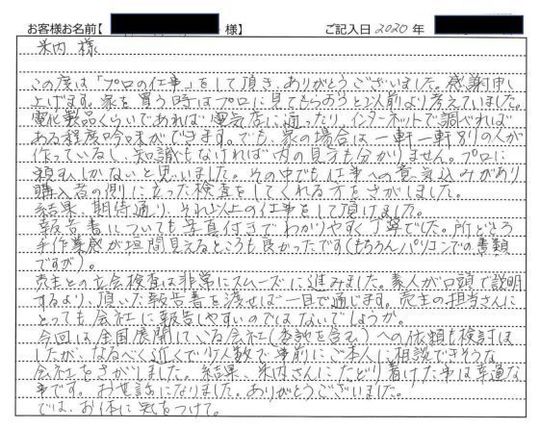 お客様お名前【 様】 ご記入日 2020年
米内 様
この度は「プロの仕事」をして頂き、ありがとうございました。感謝申し
上げます。家を買う時はプロに見てもらおうと以前より考えていました。
電化製品くらいであれば電気店に通ったり、インターネットで調べれば
ある程度吟味ができます。でも、家の場合は一軒一軒別の人が
作っているし、知識もなければ内の見方も分かりません。プロに
頼むしかないと思いました。その中でも仕事への意気込みがあり
購入者の側に立った検査をしてくれる方をさがしました。
結果、期待通り、それ以上の仕事をして頂けました。
報告書についても写真付きでわかりやすく丁寧でした。所どころ
手作業感が垣間見えるところも良かったです(もちろんパソコンでの書類
ですが)。
売主との立会検査は非常にスムーズに進みました。素人が口頭で説明
するより、頂いた報告書を渡せば一目で通じます。売主の担当さんに
とっても会社に報告しやすいのではないでしょうか。
今回は全国展開している会社(委託を含む)への依頼も検討しま
したが、なるべく近くで少人数で事前にご本人に相談できそうな
会社をさがしました。結果、米内さんにたどり着けた事は幸運な
事です。お世話になりました。ありがとうございました。
では、お体に気をつけて。